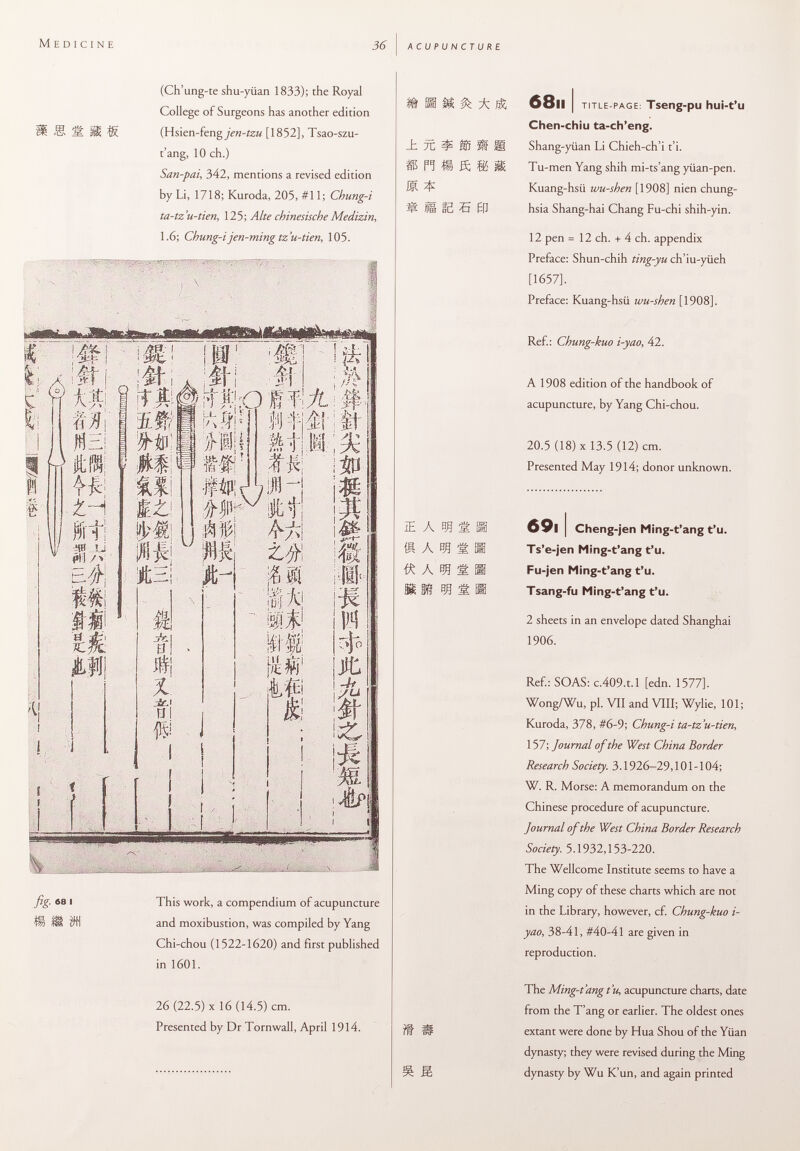 MEDICINE
36
ACUPUNCTURE
(Ch'ung-te shu-yüan 1833); the Royal
College of Surgeons has another edition
藻思堂藏板
(Hsien-feng jen-tzu [1852], Tsao-szu-
t'ang, 10 ch.)
San-pai, 342, mentions a revised edition
by Li, 1718; Kuroda, 205, #11; Chung-i
ta-tz'u-tien, 125; Alte chinesische Medizin,
1.6; Chung-i jen-ming tz'u-tien, 105.
法於鋒針尖如挺其鋒微圓長四寸此九針之長短也
九針圖
鑱針
平半寸長一寸六分頭大末銳病在皮
膚刺熱者用此今之名箭頭針是也
圓針
其身圓鋒如卵形長一
寸六分揩摩分肉用此
鍉針
其鋒如黍粟之銳長三
寸五分脉氣虛少用此
鍉音時又音低
鋒針
其刃三隅長一寸六分發痼疾刺
大者用此今之所謂三稜針是也
fig. 68 I
楊繼洲
This work, a compendium of acupuncture
and moxibustion, was compiled by Yang
Chi-chou (1522-1620) and first published
in 1601.
26 (22.5) x 16 (14.5) cm.
Presented by Dr Tornwall, April 1914.
繪圖鍼灸大成
68II | TITLE-PAGE: Tseng-pu hui-t'u
Chen-chiu ta-ch'eng.
上元李節齋題
Shang-yüan Li Chieh-ch'i t'i.
都門楊氏秘藏
Tu-men Yang shih mi-ts'ang yüan-pen.
原本
Kuang-hsü wu-shen [1908] nien chung-
章福記石印
hsia Shang-hai Chang Fu-chi shih-yin.
12 pen = 12 ch. + 4 ch. appendix
Preface: Shun-chih ting-yu ch'iu-yüeh
[1657].
Preface: Kuang-hsü wu-shen [1908].
Ref.: Chung-kuo i-yao, 42.
A 1908 edition of the handbook of
acupuncture, by Yang Chi-chou.
20.5 (18) x 13.5 (12) cm.
Presented May 1914; donor unknown.
正人明堂圖
69I | Cheng-jen Ming-t'ang t'u.
俱人明堂圖
Ts'e-jen Ming-t'ang t'u.
伏人明堂圖
Fu-jen Ming-t'ang t'u.
臟腑明堂圖
Tsang-fu Ming-t'ang t'u.
2 sheets in an envelope dated Shanghai
1906.
Ref.: SOAS: c.409.t.1 [edn. 1577].
Wong/Wu, pl. VII and VIII; Wylie, 101;
Kuroda, 378, #6-9; Chung-i ta-tz'u-tien,
157; Journal of the West China Border
Research Society. 3.1926–29,101-104;
W. R. Morse: A memorandum on the
Chinese procedure of acupuncture.
Journal of the West China Border Research
Society. 5.1932,153-220.
The Wellcome Institute seems to have a
Ming copy of these charts which are not
in the Library, however, cf. Chung-kuo i-
yao, 38-41, #40-41 are given in
reproduction.
The Ming-t'ang t'u, acupuncture charts, date
from the T'ang or earlier. The oldest ones
滑壽
extant were done by Hua Shou of the Yüan
dynasty; they were revised during the Ming
吳昆
dynasty by Wu K'un, and again printed